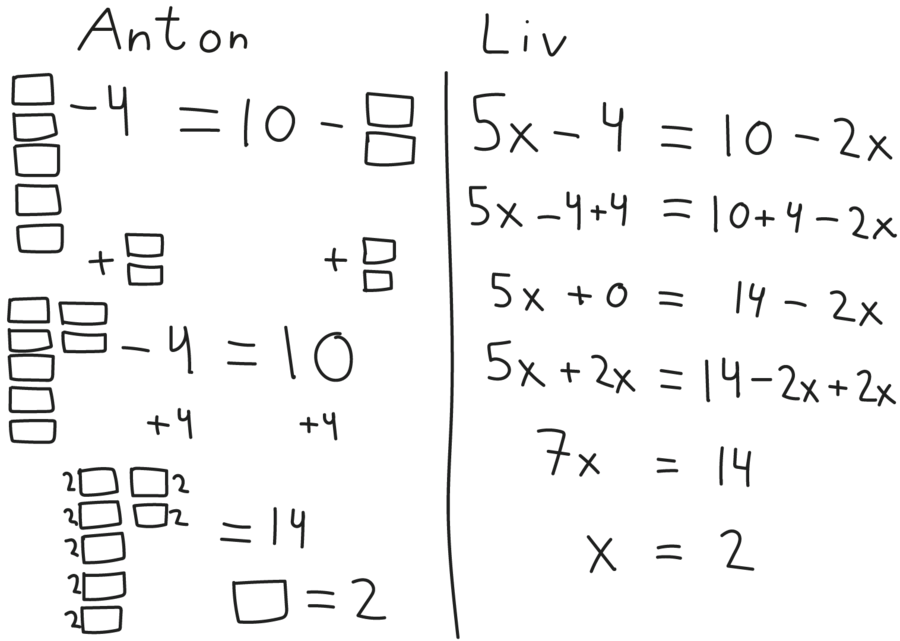 Anton
□□□□□ -4 = 10 - □□
+ □□ + □□
□□□□□□□ - 4 = 10
+4 +4
2□ □2
2□ □2
2□ = 14
2□
2□
□ = 2
Liv
5x - 4 = 10 - 2x
5x - 4+4 = 10+4-2x
5x + 0 = 14 - 2x
5x + 2x = 14-2x+2x
7x = 14
x = 2